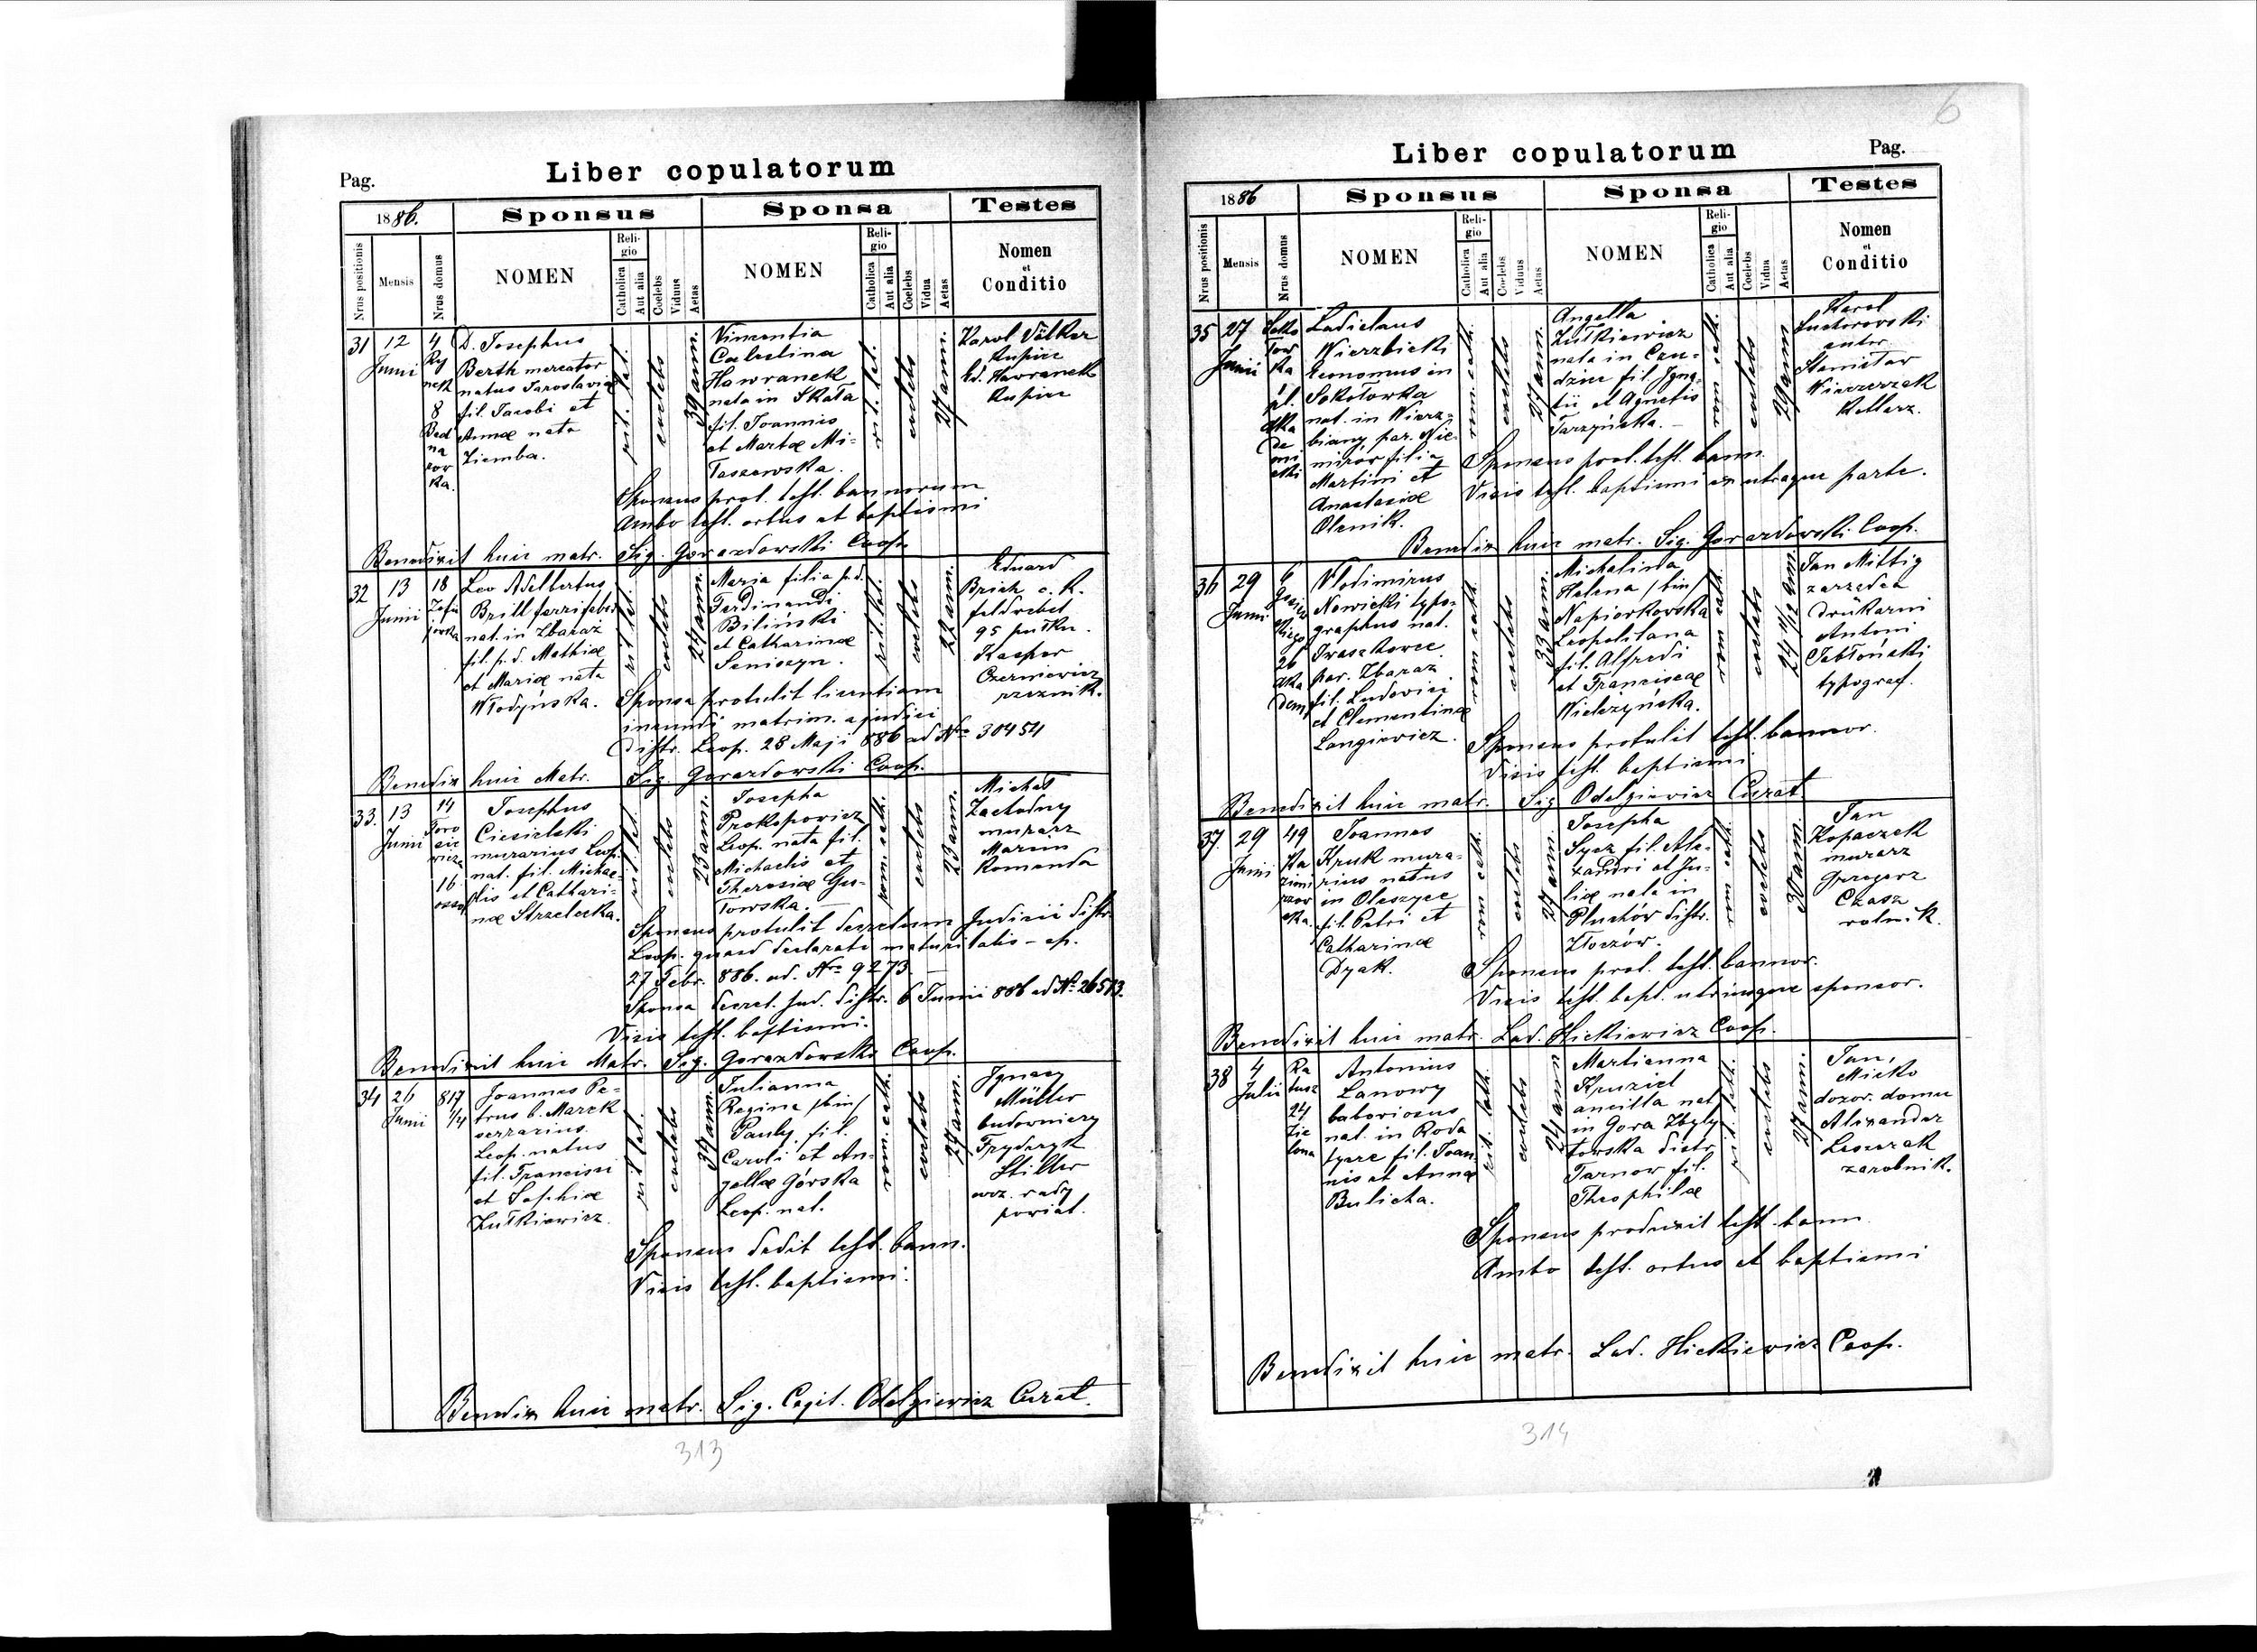 Pag.
Liber copulatorum
1886.
Sponsus
Sponsa
Testes
Nrus positionis
Mensis
Nrus domus
NOMEN
Reli-
gio
Catholica
Aut alia
Coelebs
Viduus
Aetas
NOMEN
Reli-
gio
Catholica
Aut alia
Coelebs
Vidua
Aetas
Nomen
et
Conditio
31
12
Junii
4
Ry
nek
8
Bed
na
row
ka.
D. Josephus
Berth mercator
natus Jaroslavia
fil. Jacobi et
Annæ nata
Ziemba.
rit. lat.
coelebs
39 ann.
Vincentia
Coelestina
Hawranek
nata in Skała
fil. Joannis
et Martæ Mi-
łaszewska.
rit. lat.
coelebs
24 ann.
Karol Völker
kupiec
Ed. Hawranek
kupiec
Sponsus prot. test. bannorum
Ambo test. ortus et baptismi
Benedixit huic matr. Sig. Gorazdowski Coop.
32
13
Junii
18
Zofi
jówka
Leo Adelbertus
Brill ferrifaber
nat. in Zbaraż
fil. p. d. Mathiæ
et Mariæ nata
Włodyńska.
rit. lat.
coelebs
24 ann.
Maria filia p. d.
Ferdinandi
Biliński
et Catharinæ
Seniszyn.
rit. lat.
coelebs
22 ann.
Eduard
Brich c. k.
feldwebel
95 pułku.
Kasper
Czerniewicz
rzeznik.
Sponsa protulit licentiam
ineundi matrim. a judici
Distr. Leop. 28 Maji 886 ad Nro 30454
Benedix huic Matr. Sig. Gorazdowski Coop.
33.
13
Junii
14
Toro
sie
wicza
16
Josephus
Ciesielski
murarius Leop.
nat. fil. Michae-
lis et Cathari-
næ Strzelecka.
rit. lat.
coelebs
23 ann.
Josepha
Prokopowicz
Leop. nata fil.
Michaelis et
Theresiæ Gu-
towska.
rom. cath.
coelebs
23 ann.
Michał
Zachodny
murarz
Marcin
Romanda
Sponsus protulit decretum Judicii distr.
Leop. quoad declarata maturitatis - ep.
27 Febr. 886. ad. Nro 9273.
Sponsa decret. Jud. distr. 6 Junii 886 ad No 26513.
Visis test. baptismi.
Benedixit huic Matr. Sig. Gorazdowski Coop.
34
26
Junii
817
1/4
Joannes Pe-
trus b. Marek
serrarius
Leop. natus
fil. Francisci
et Sophiæ
Żułkiewicz.
rit. lat.
coelebs
34 ann.
Julianna
Regina /bin/
Pauly fil.
Caroli et An-
gellæ Górska
Leop. nat.
rom. cath.
coelebs
24 ann.
Ignacy
Müller
budowniczy
Fryderyk
Stiller
urz. rady
powiat.
Sponsus dedit test. bann.
Visis test. baptismi.
Benedix huic matr. Sig. Capit. Odelgiewicz Curat.
313
6
Liber copulatorum
Pag.
1886
Sponsus
Sponsa
Testes
Nrus positionis
Mensis
Nrus domus
NOMEN
Reli-
gio
Catholica
Aut alia
Coelebs
Viduus
Aetas
NOMEN
Reli-
gio
Catholica
Aut alia
Coelebs
Vidua
Aetas
Nomen
et
Conditio
35
27
Junii
Soko
łow
ka
pl.
aka
de
mi
cki
Ladislaus
Wierzbicki
Economus in
Sokołowka
nat. in Wierz-
biany, par. Nie-
mirów filia
Martini et
Anastasiæ
Olenik.
coelebs
27 ann.
Angella
Żułkiewicz
nata in Czu-
dzice fil. Igna-
tii et Agnetis
Tarzyńska.
coelebs
29 ann
Karol
Stanisław
Wieczerzak
kellerz.
Sponsus prot. test. bann.
Visis test. baptismi ex utraque parte.
Benedix huic matr. Sig. Gorazdowski Coop.
36
29
Junii
26
aka
dem
Vlodimirus
Nowicki typo-
graphus nat.
Iwaszkowce
par. Zbaraz
fil. Ludovici
et Clementinæ
Langiewicz.
coelebs
33 ann.
Michalina
Helena /bin/
Napiorkowska
Leopolitana
fil. Alfredi
et Franciscæ
Wielżyńska.
coelebs
Jan Mittig
zarządca
drukarni
Antoni
Jabłoński
typograf.
Sponsus protulit test. bannor.
Visis test. baptismi
Benedixit huic matr. Sig Odelgiewicz Curat.
37.
29
Junii
49
Ka
zimi
rzow
ska.
Joannes
Kruk mura-
rius natus
in Oleszyce
fil. Petri et
Catharinæ
Dyak.
coelebs
27 ann.
Josepha
Sycz fil. Ale-
xandri et Ju-
liæ nata in
Pluchów distr.
Złoczów.
coelebs
30 ann.
Jan
Kopaczek
murarz
Grzegorz
Czasz
rolnik.
Sponsus prot. test. bannor.
Visis test. bapt. utriusque sponsor.
Benedixit huic matr. Lad. Hickiewicz Coop.
38
4
Julii
Ra
tusz
24
Zie
lona
Antonius
Lanowy
laboriosus
nat. in Roda
tycze fil. Joan-
nis et Annæ
Bulicka.
rit. lath.
coelebs
24 ann
Marlianna
Kruziel
ancilla nat
in Gora Zbyly
towska distr.
Tarnow fil.
Theophilæ
rit. lath.
coelebs
27 ann.
Jan,
Miećko
dozor. domu
Alixander
Leszczak
zarobnik.
Sponsus produxit test. bann
Ambo test. ortus et baptismi
Benedixit huic matr. Lad. Hickiewicz Coop.
314